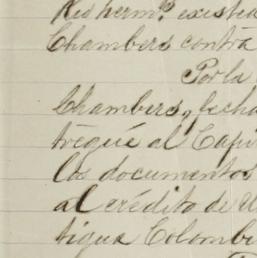 Rio hermº existen
Chambers contra
Por la
Chambers, fecha
tregué al Capi
los documentos
al crédito de
tigua Colombi